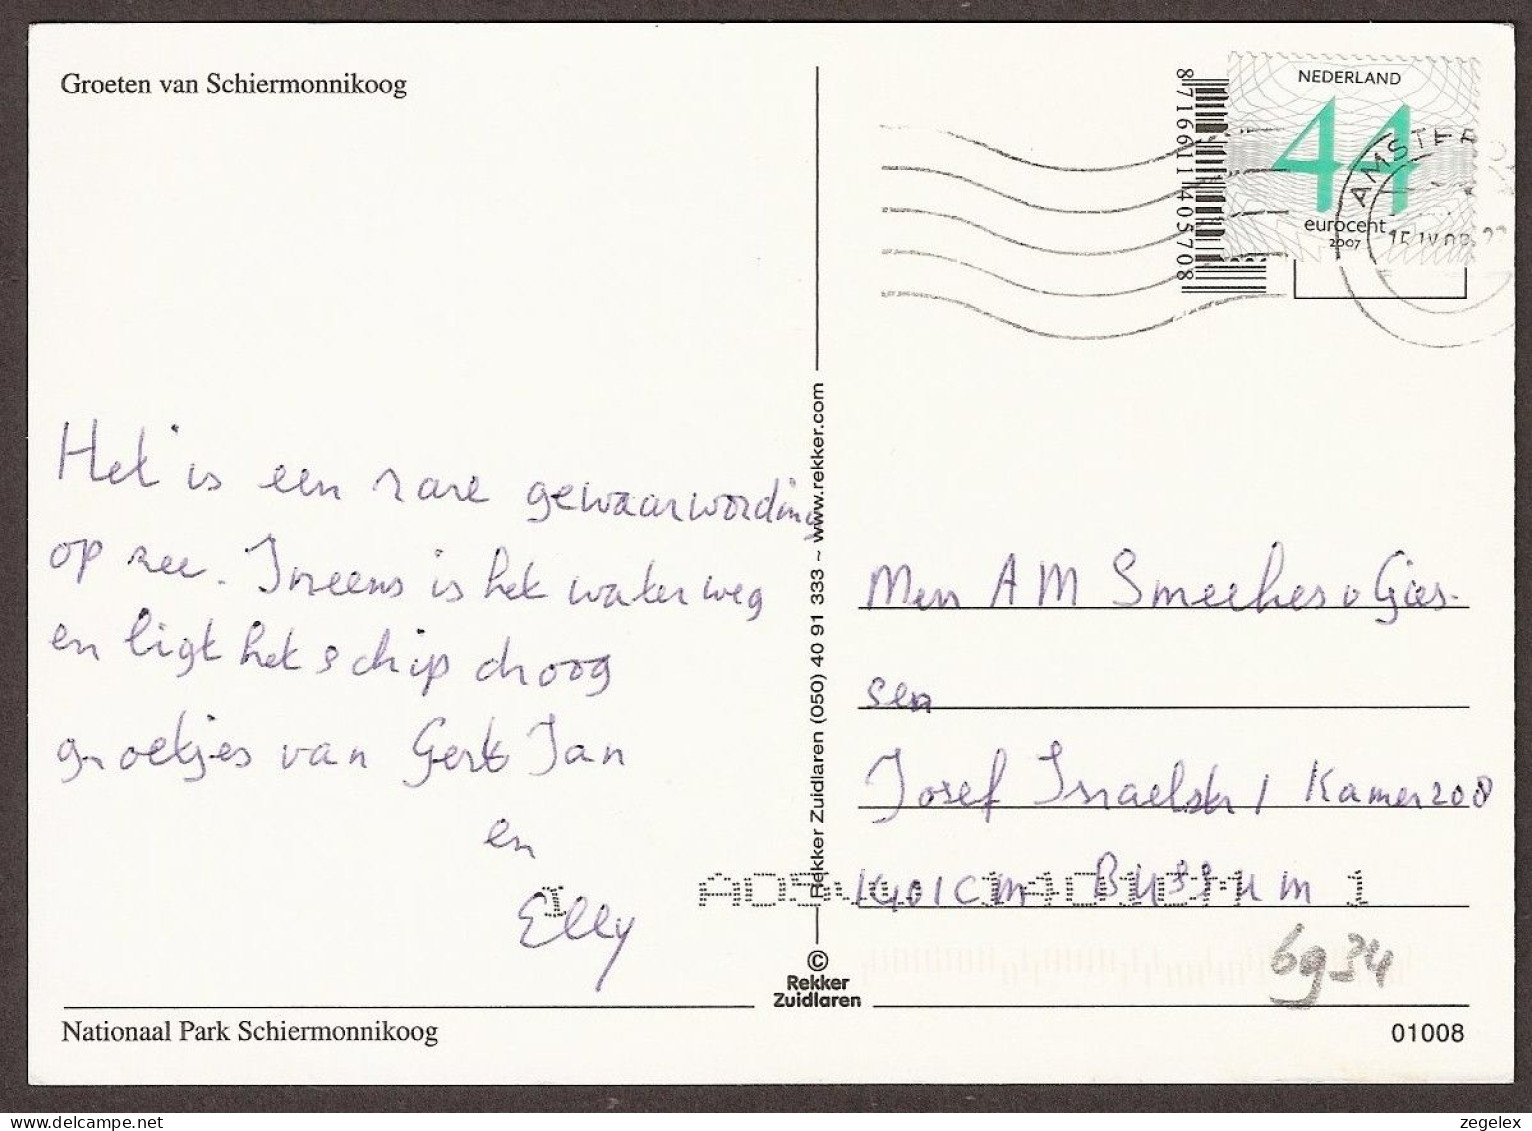 Groeten van Schiermonnikoog
Het is een rare gewaarwording
op zee. Ineens is het water weg
en ligt het schip droog
groetjes van Gert Jan
en
Elly
Nationaal Park Schiermonnikoog
Rekker Zuidlaren (050) 40 91 333 ~ www.rekker.com
©
Rekker
Zuidlaren
8716611405708
NEDERLAND
44
eurocent
2007
AMSTER
Mevr A M Smeehes v Gies-
sen
Josef Israelstr 1 Kamer 208
Bussum
1
6934
01008
zegelex